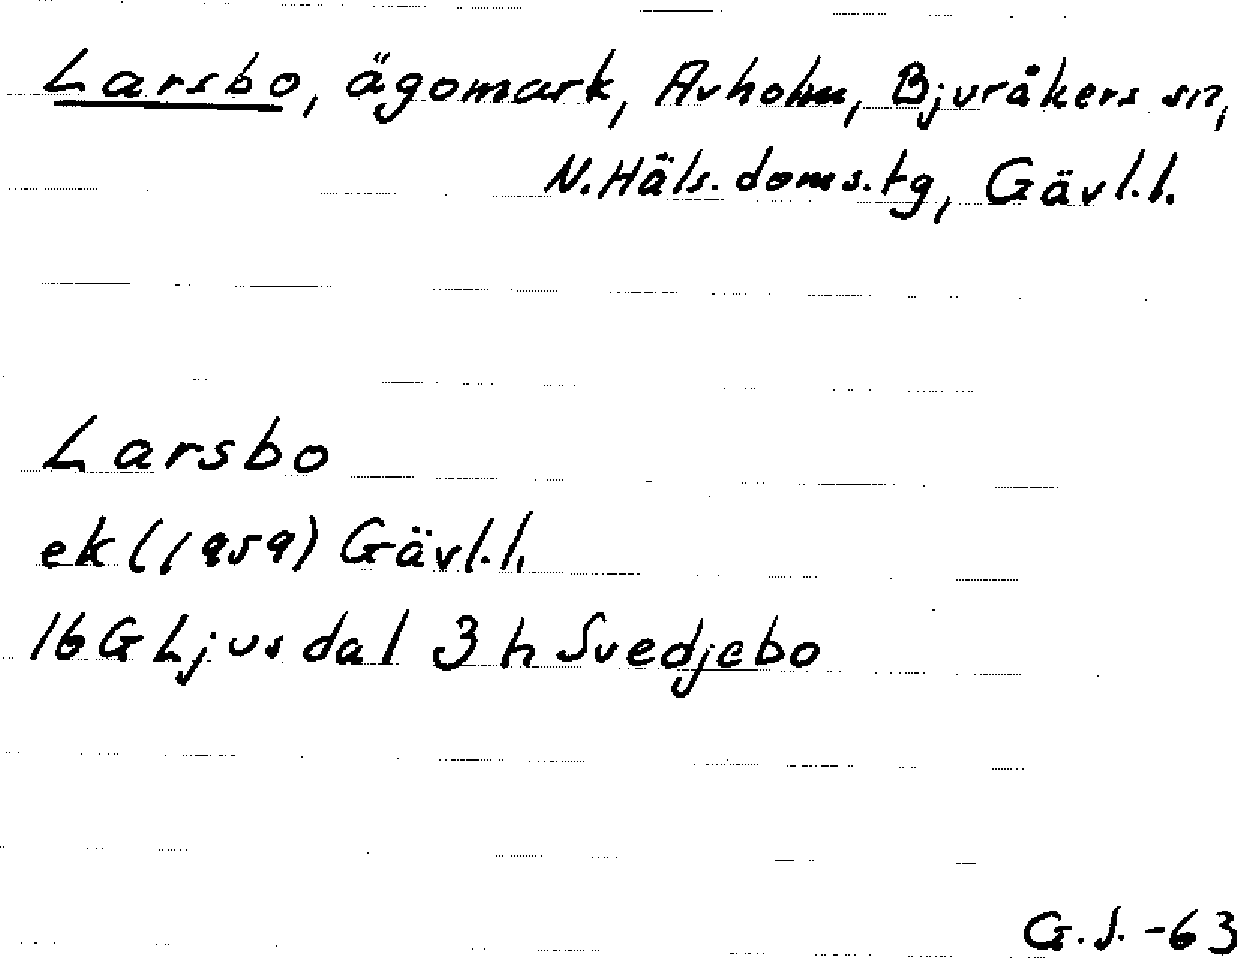 Larsbo, ägomark, Avholm, Bjuråkers sn,
N. Häls. doms. tg, Gävl. l.
Larsbo
ek (1959) Gävl. l.
16 G Ljusdal 3 h Svedjebo
G.S. -63